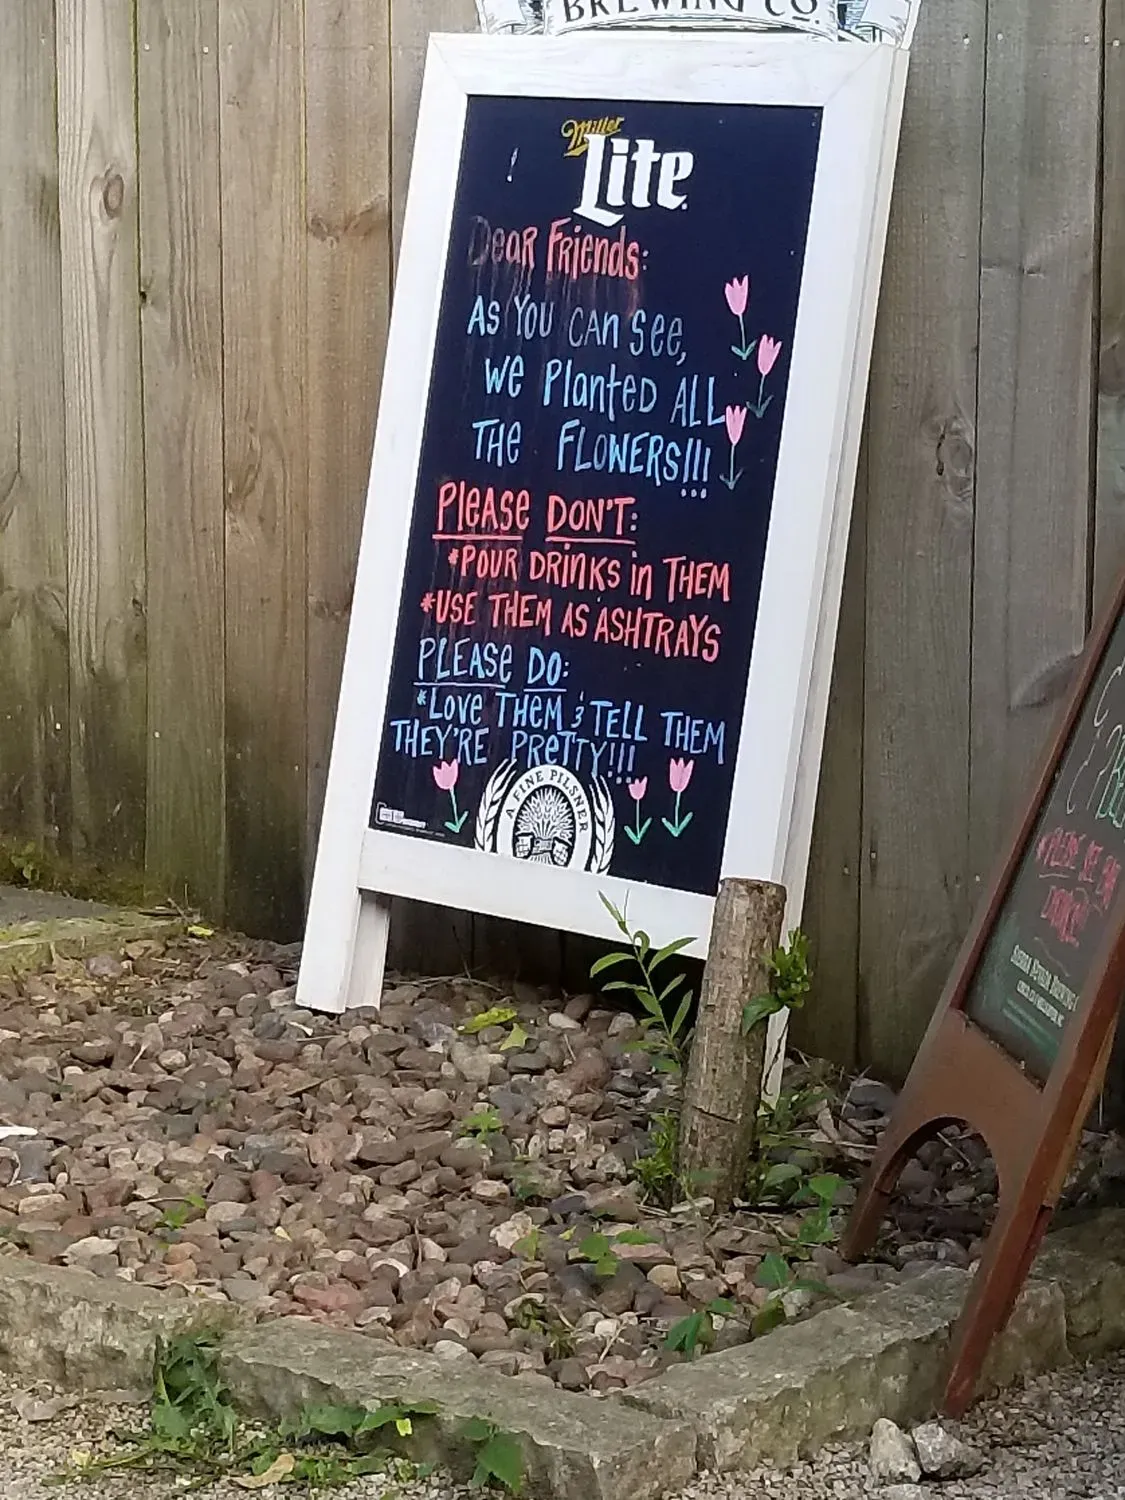 BREWING CO.
Miller
Lite
Dear Friends:
AS YOU CAN SEE,
WE PLANTED ALL
THE FLOWERS!!!
PLEASE DON'T:
*POUR DRINKS in THEM
*USE THEM AS ASHTRAYS
PLEASE DO:
*LOVE THEM & TELL THEM
THEY'RE PRETTY!!!
A FINE PILSNER
*PLEASE SEE BAR
SIERRA NEVADA BREWING